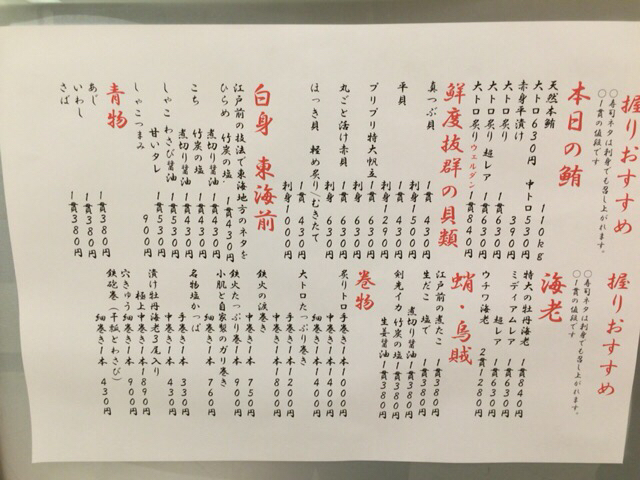 握りおすすめ
○寿司ネタは刺身でも召し上がれます。
○1貫の値段です
本日の鮪
天然本鮪 110kg
大トロ630円 中トロ530円
赤身平漬け 390円
大トロ炙り 1貫630円
大トロ炙り 超レア 1貫630円
大トロ炙りウェルダン1貫840円
鮮度抜群の貝類
真つぶ貝 1貫 430円
刺身1500円
平貝 1貫 430円
刺身1290円
プリプリ特大帆立1貫 630円
刺身 630円
丸ごと活け赤貝 1貫 630円
刺身 630円
ほっき貝 軽め炙り/むきたて
1貫 430円
刺身1000円
白身 東海前
江戸前の技法で東海地方のネタを
ひらめ 竹炭の塩 1貫430円
煮切り醤油 1貫430円
こち 竹炭の塩 1貫430円
煮切り醤油 1貫430円
しゃこ わさび醤油 1貫530円
甘いタレ 1貫530円
しゃこつまみ 900円
青物
あじ 1貫380円
いわし 1貫380円
さば 1貫380円
握りおすすめ
○寿司ネタは刺身でも召し上がれます。
○1貫の値段です
海老
特大の牡丹海老 1貫840円
ミディアムレア 1貫630円
超レア 1貫630円
ウチワ海老 2貫1280円
蛸・烏賊
江戸前の煮たこ 1貫380円
生だこ 塩で 1貫380円
煮切り醤油1貫380円
剣先イカ 竹炭の塩 1貫380円
生姜醤油 1貫380円
巻物
炙りトロ手巻き1本1000円
中巻き1本1400円
細巻き1本1400円
大トロたっぷり巻き
手巻き1本1200円
中巻き1本1800円
鉄火の涙巻き
中巻き1本 750円
鉄火たっぷり巻き1本 900円
小肌と自家製のガリ巻き
細巻き1本 760円
名物塩かっぱ
手巻き1本 330円
中巻き1本 430円
漬け牡丹海老3尾入り
極上中巻き1本1890円
穴きゅう細巻き1本 900円
鉄砲巻き(干瓢とわさび)
細巻き1本 430円